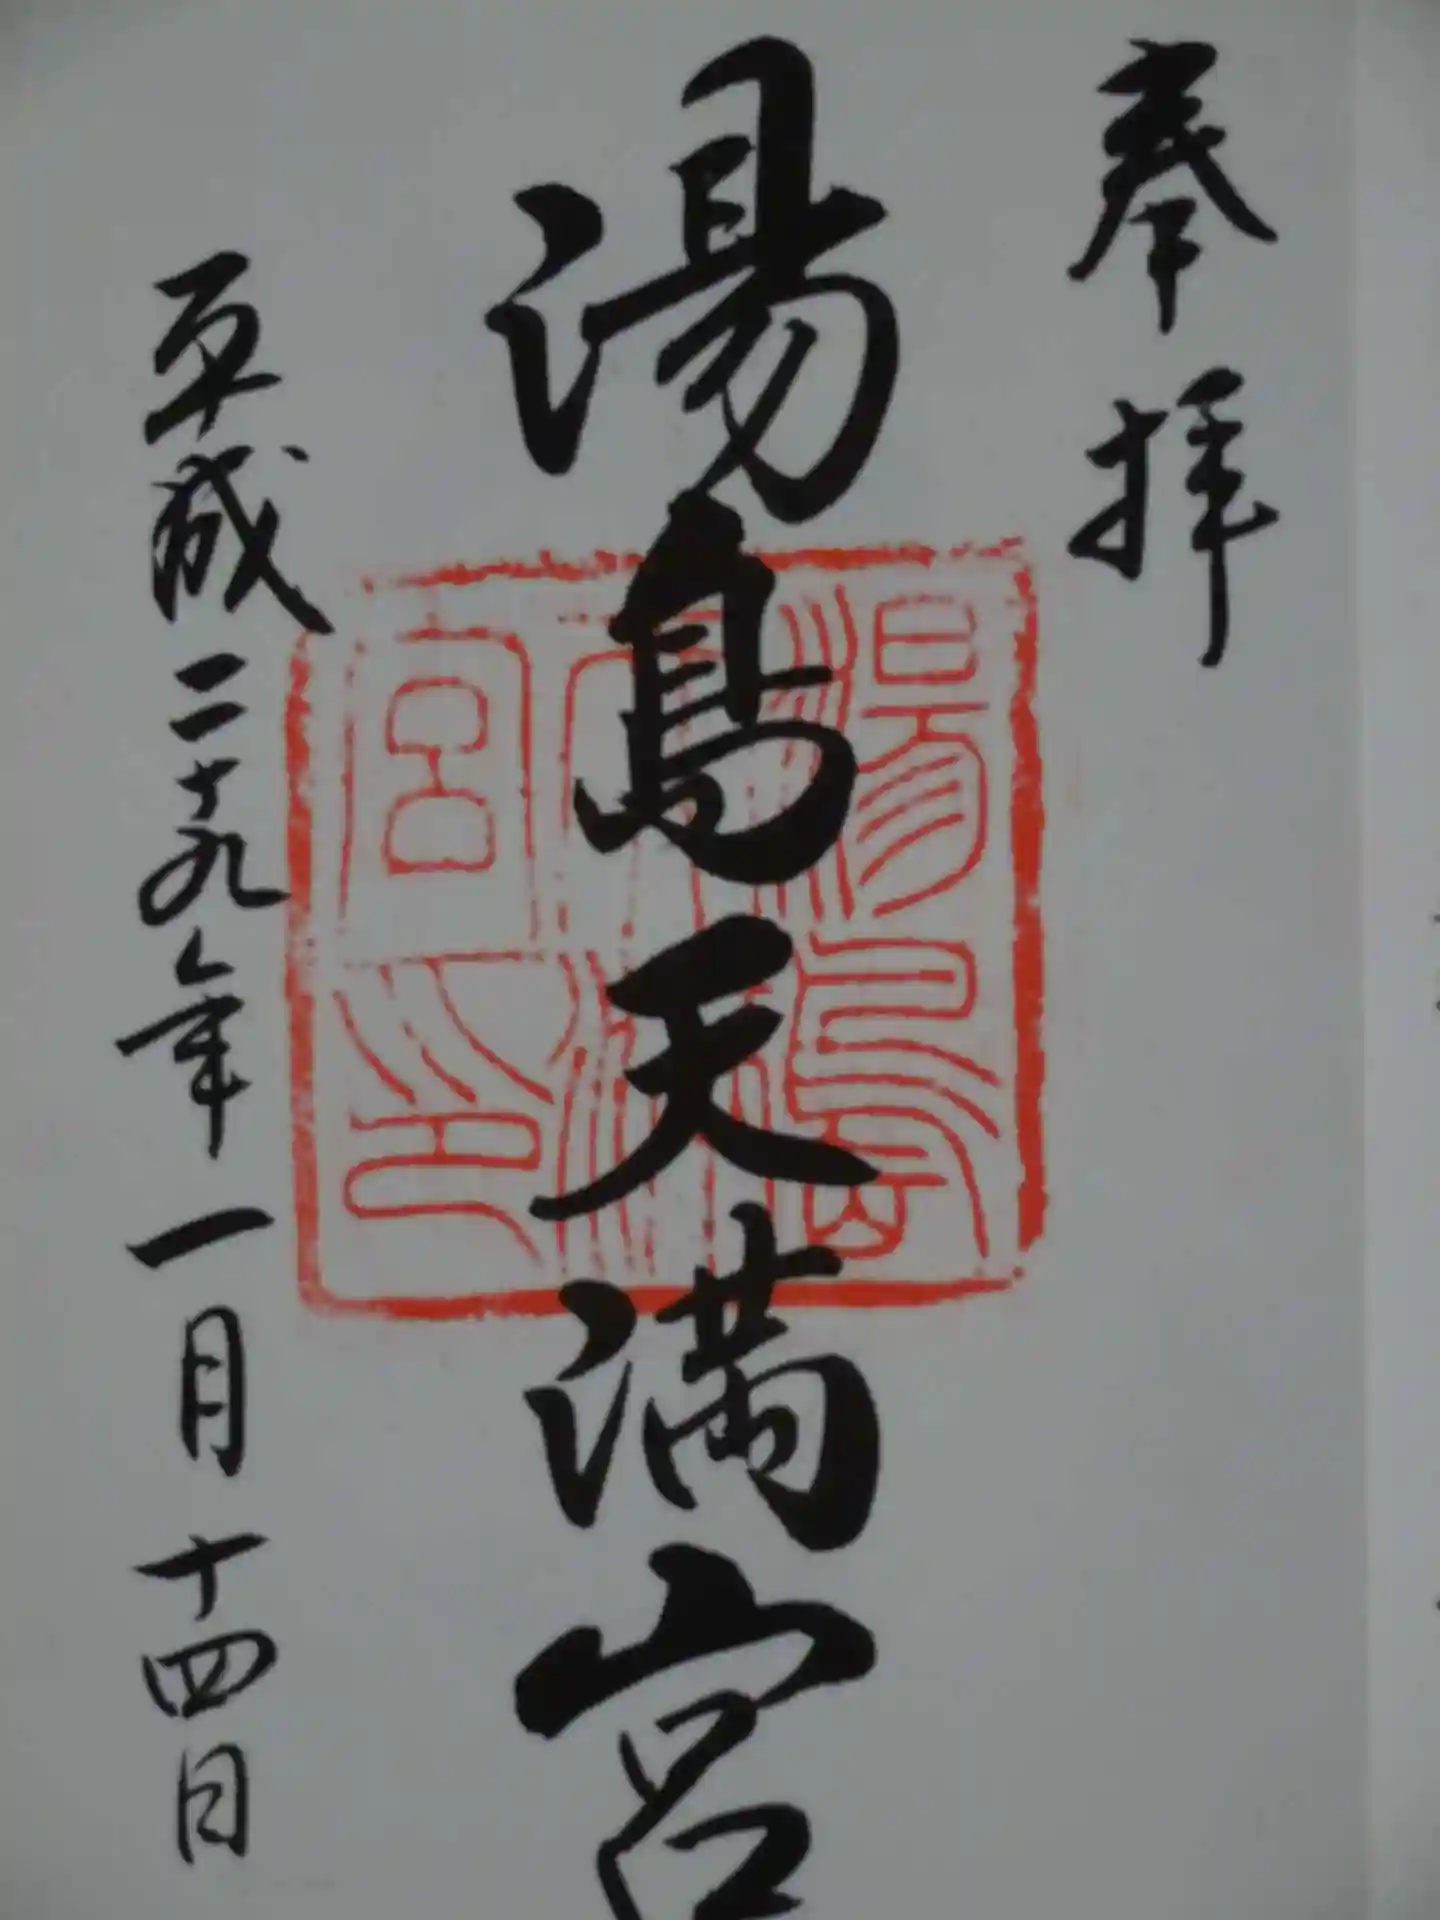 奉拝
湯島天満宮
湯島天満宮印
平成二十九年一月十四日